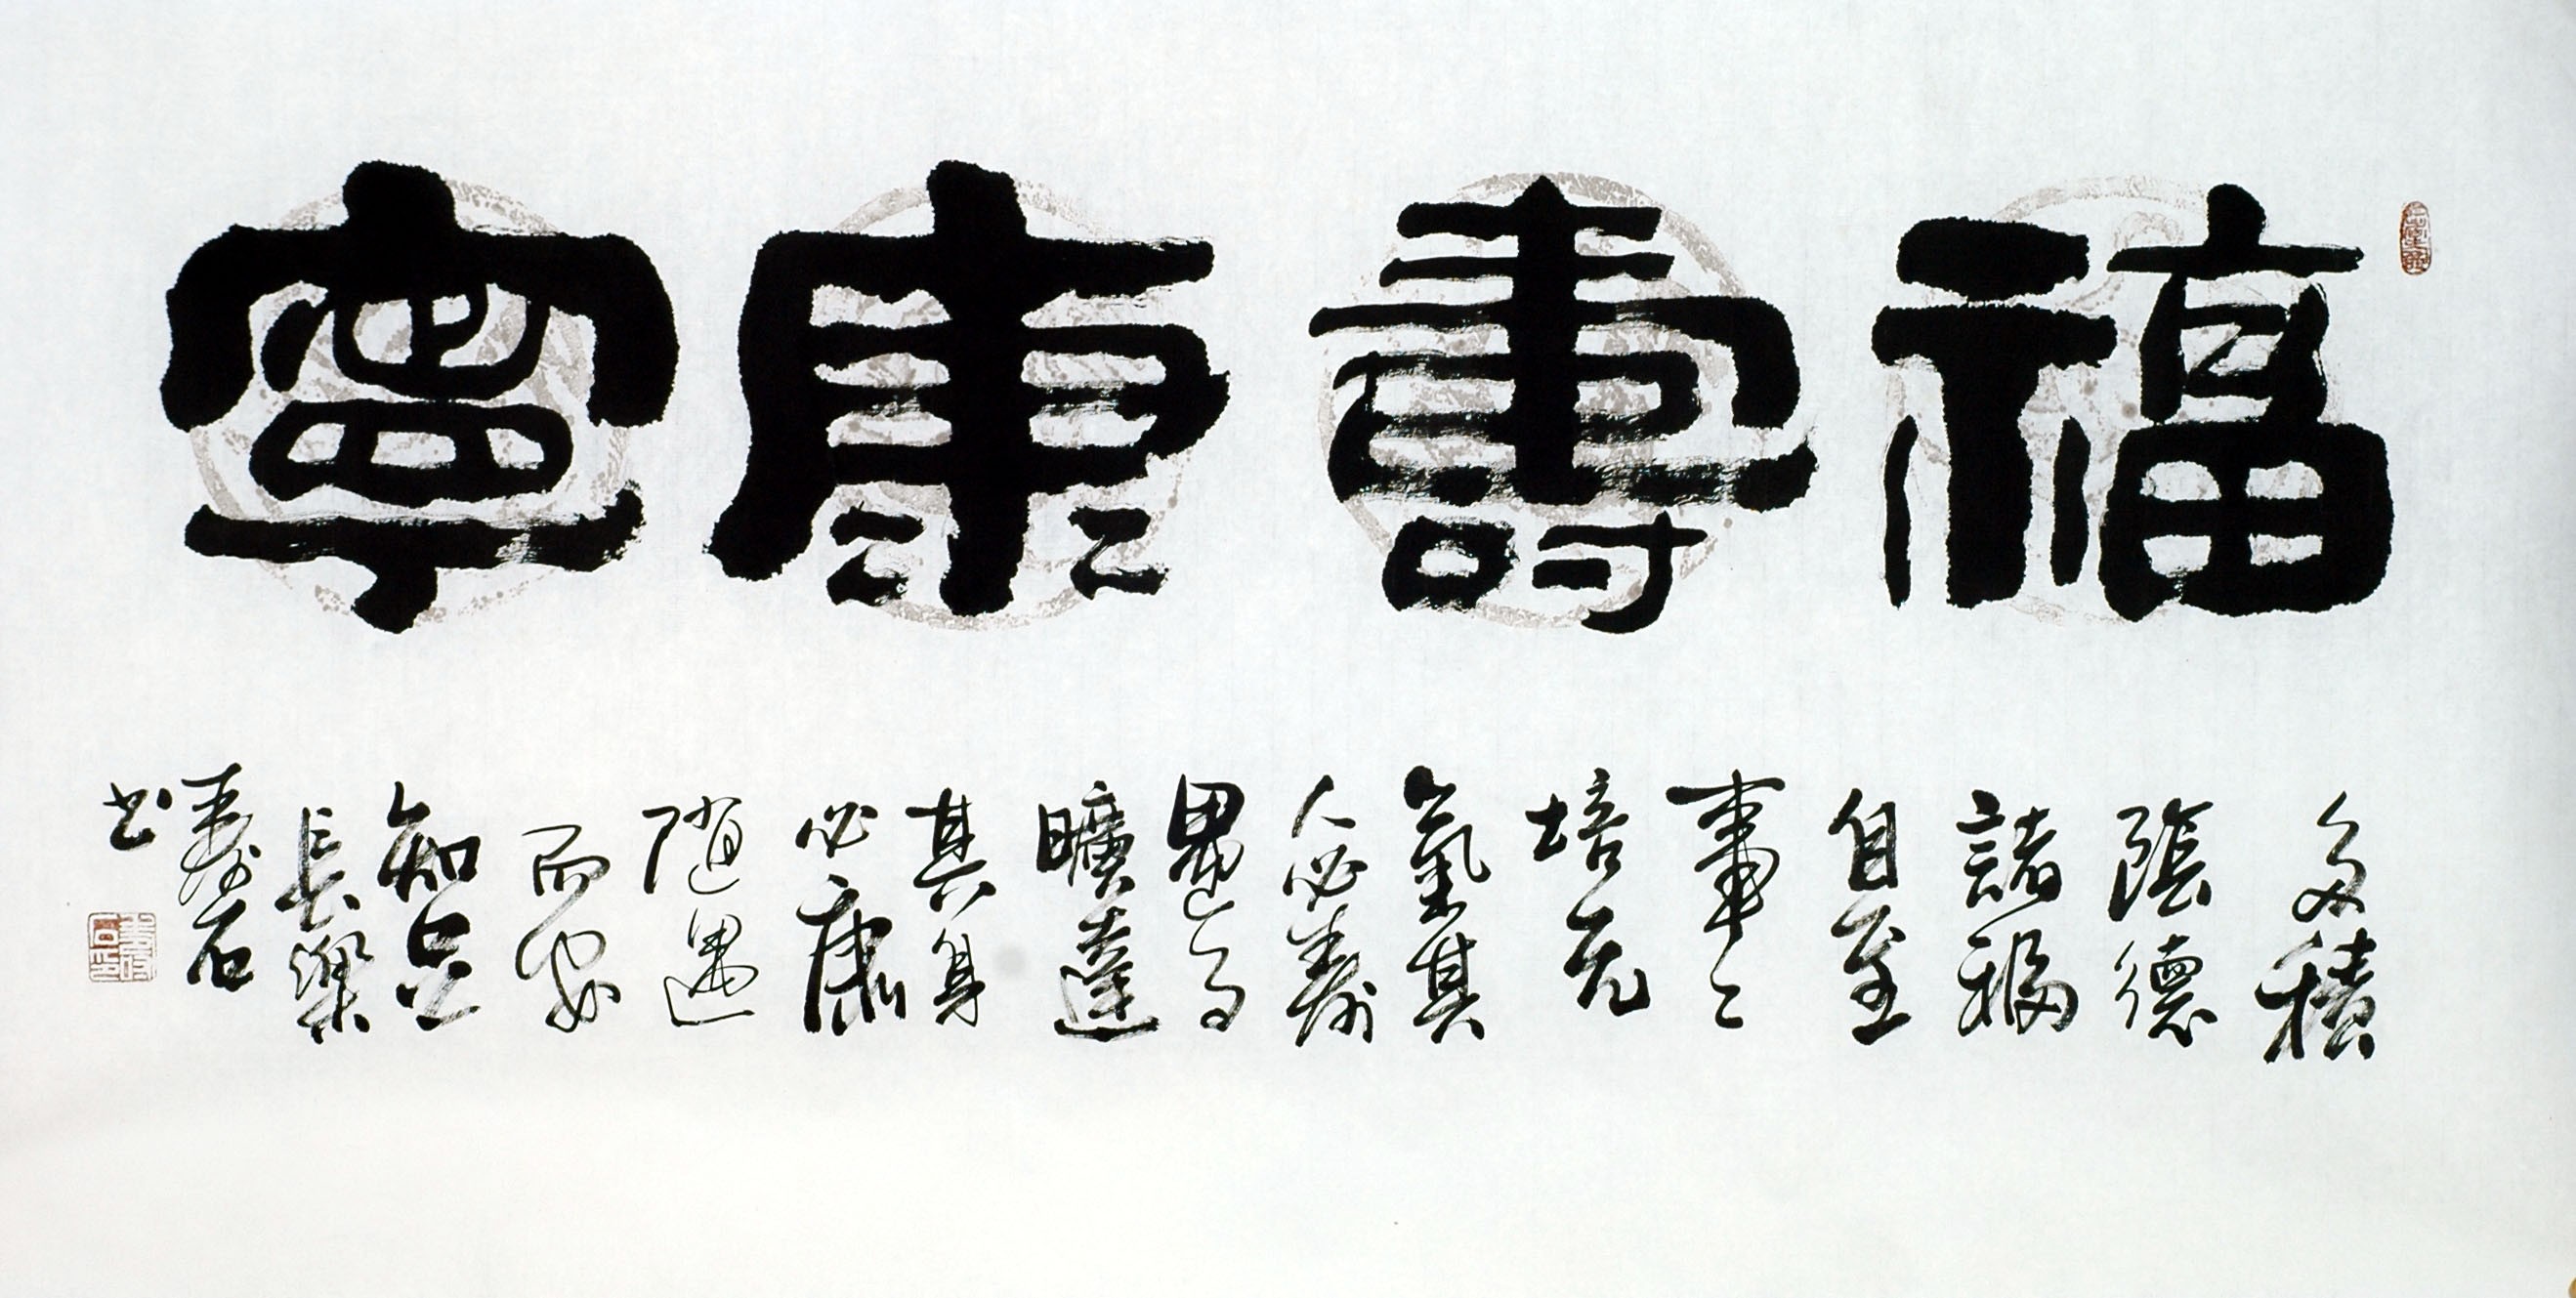 福壽康寧
多積
陰德
諸福
自至
事々
培元
氣其
人必壽
曠達
其身
必康
隨遇
而安
知足
長樂
壽石
书